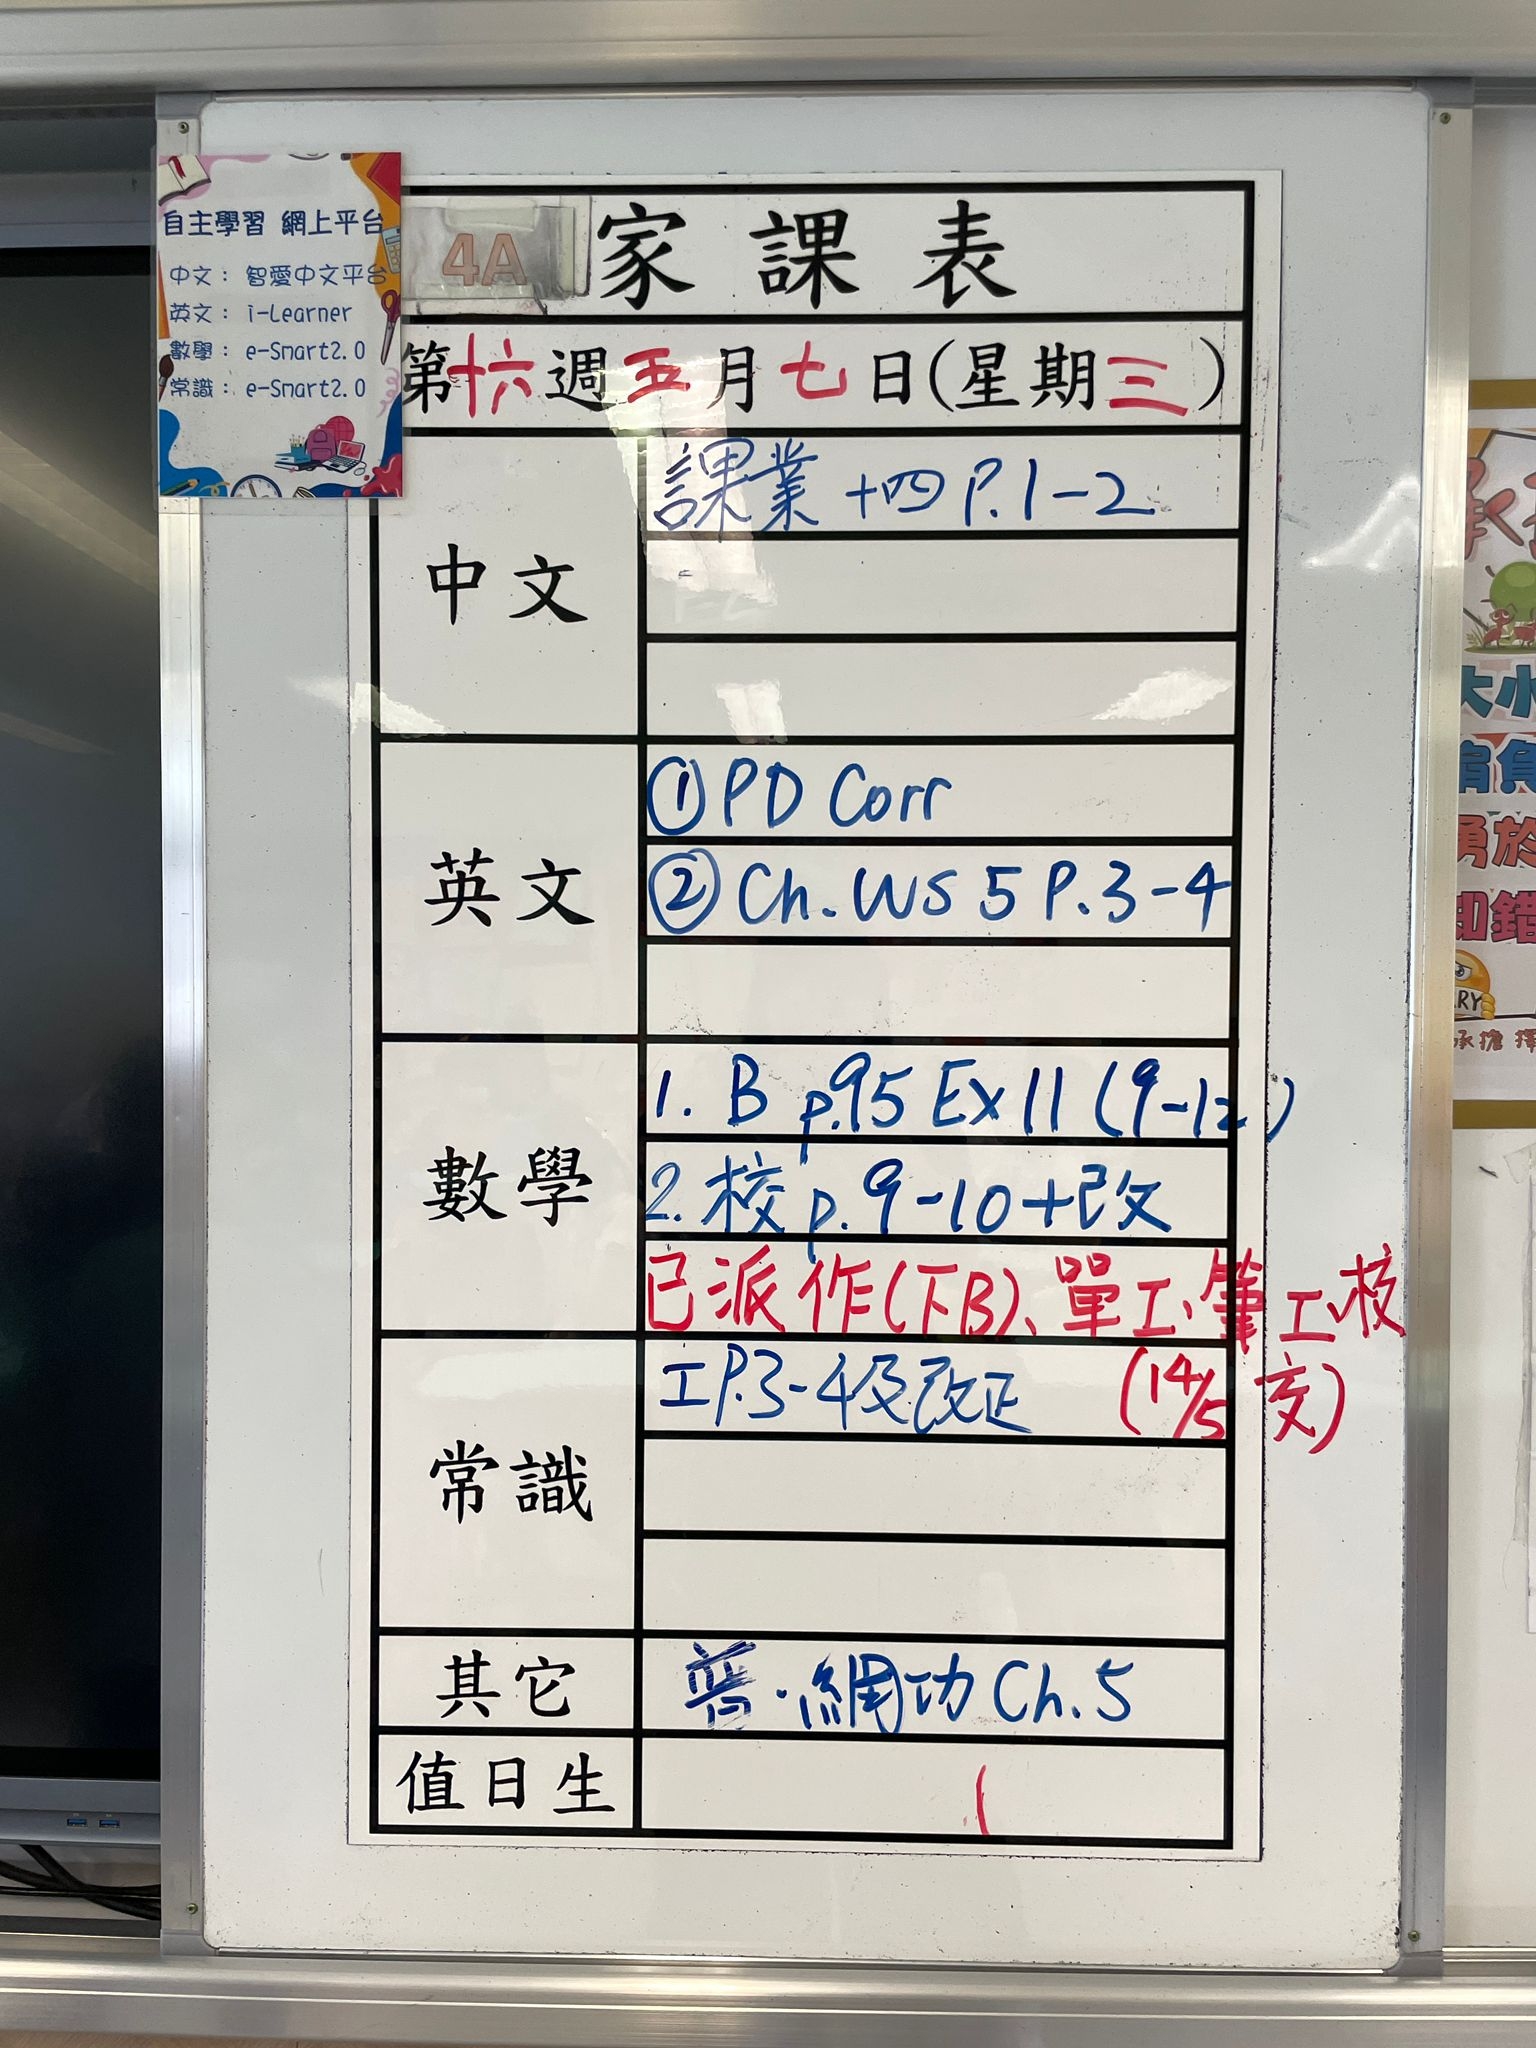 自主學習 網上平台
中文： 智愛中文平台
英文： i-Learner
數學： e-Smart2.0
常識： e-Smart2.0
4A 家課表
第十六週五月七日(星期三)
中文
課業十四 P.1-2
英文
① PD Corr
② Ch. WS 5 P.3-4
數學
1. B p.95 Ex 11 (9-12)
2. 校 p.9-10+改
已派作(下B)、單工、筆工、校
常識
工P.3-4及改正
(14/5 交)
其它
普．網功 Ch.5
值日生
大小
勇於
知錯
RY
承擔